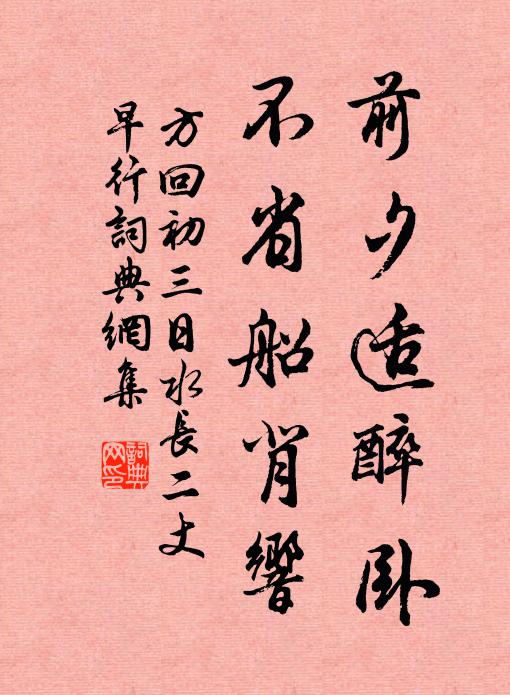 前夕适醉卧
不省船背響
方回初三日水長二丈
早行詞典網集
詞典網印